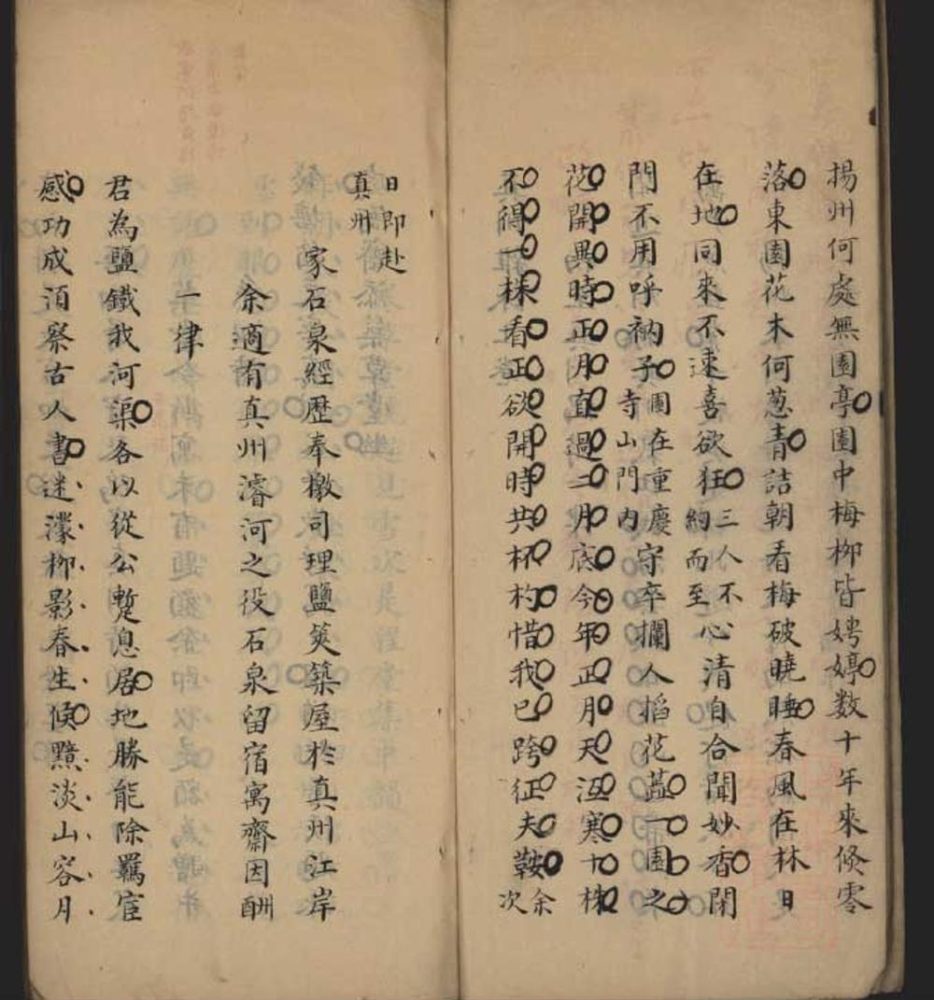 揚州何處無園亭園中梅柳皆娉婷数十年來倏零
落東園花木何葱青詰朝看梅破曉睡春風在林日
在地同來不速喜欲狂三人不約而至心清自合聞妙香閉
門不用呼衲子園在重慶寺山門内守卒攔人搯花蕋一園之
花開異時正月直過二月底今年正月天沍寒十株
不得一株看正欲開時共杯杓惜我已跨征夫鞍余次
日即赴真州
家石泉經歷奉檄司理鹽筴築屋於真州江岸
余適有真州濬河之役石泉留宿寓齋因酬
一律
君為鹽鐵我河渠各以從公蹔息居地勝能除羈宦
感功成湏察古人書迷濛柳影春生候黯淡山容月